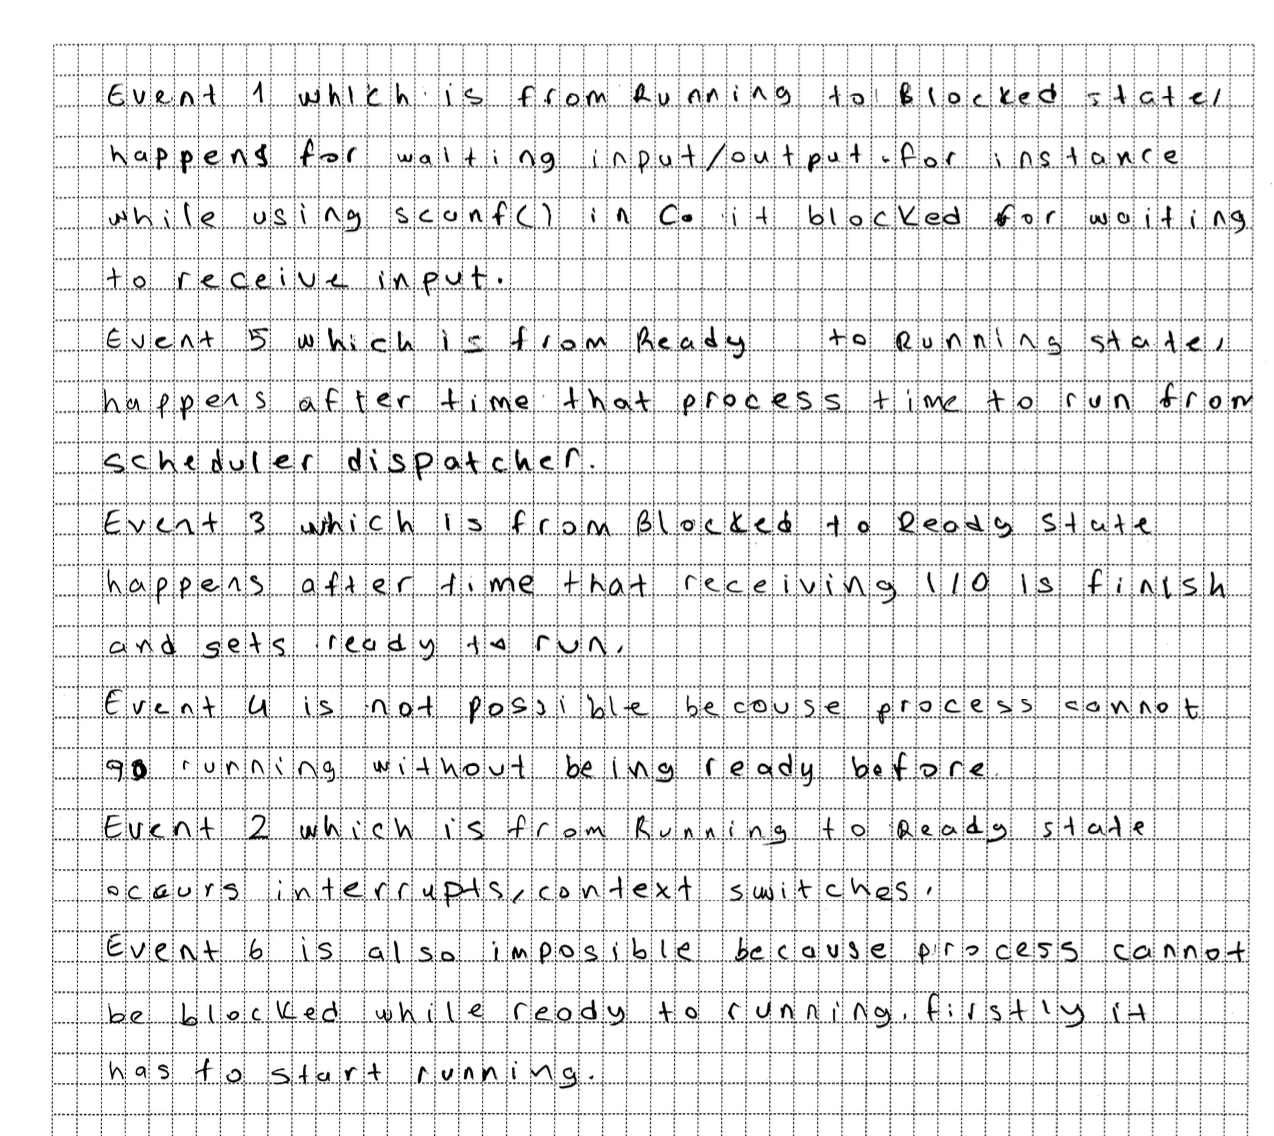 Event 1 which is from Running to Blocked state,
happens for waiting input/output. for instance
while using scanf() in C. it blocked for waiting
to receive input.
Event 5 which is from Ready to Running state,
happens after time that process time to run from
scheduler dispatcher.
Event 3 which is from Blocked to Ready state
happens after time that receiving I/O is finish
and sets ready to run.
Event 4 is not possible becouse process cannot
go running without being ready before.
Event 2 which is from Running to Ready state
occurs interrupts, context switches.
Event 6 is also imposible because process cannot
be blocked while ready to running. firstly it
has to start running.